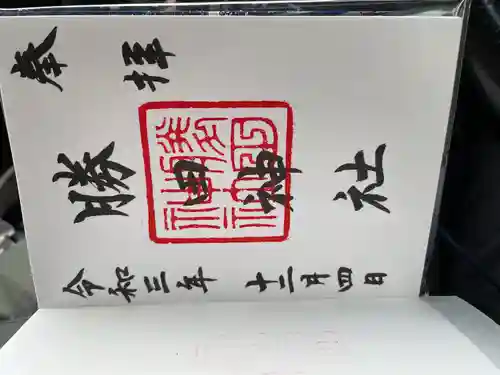 奉拝
勝田神社
令和三年十二月四日